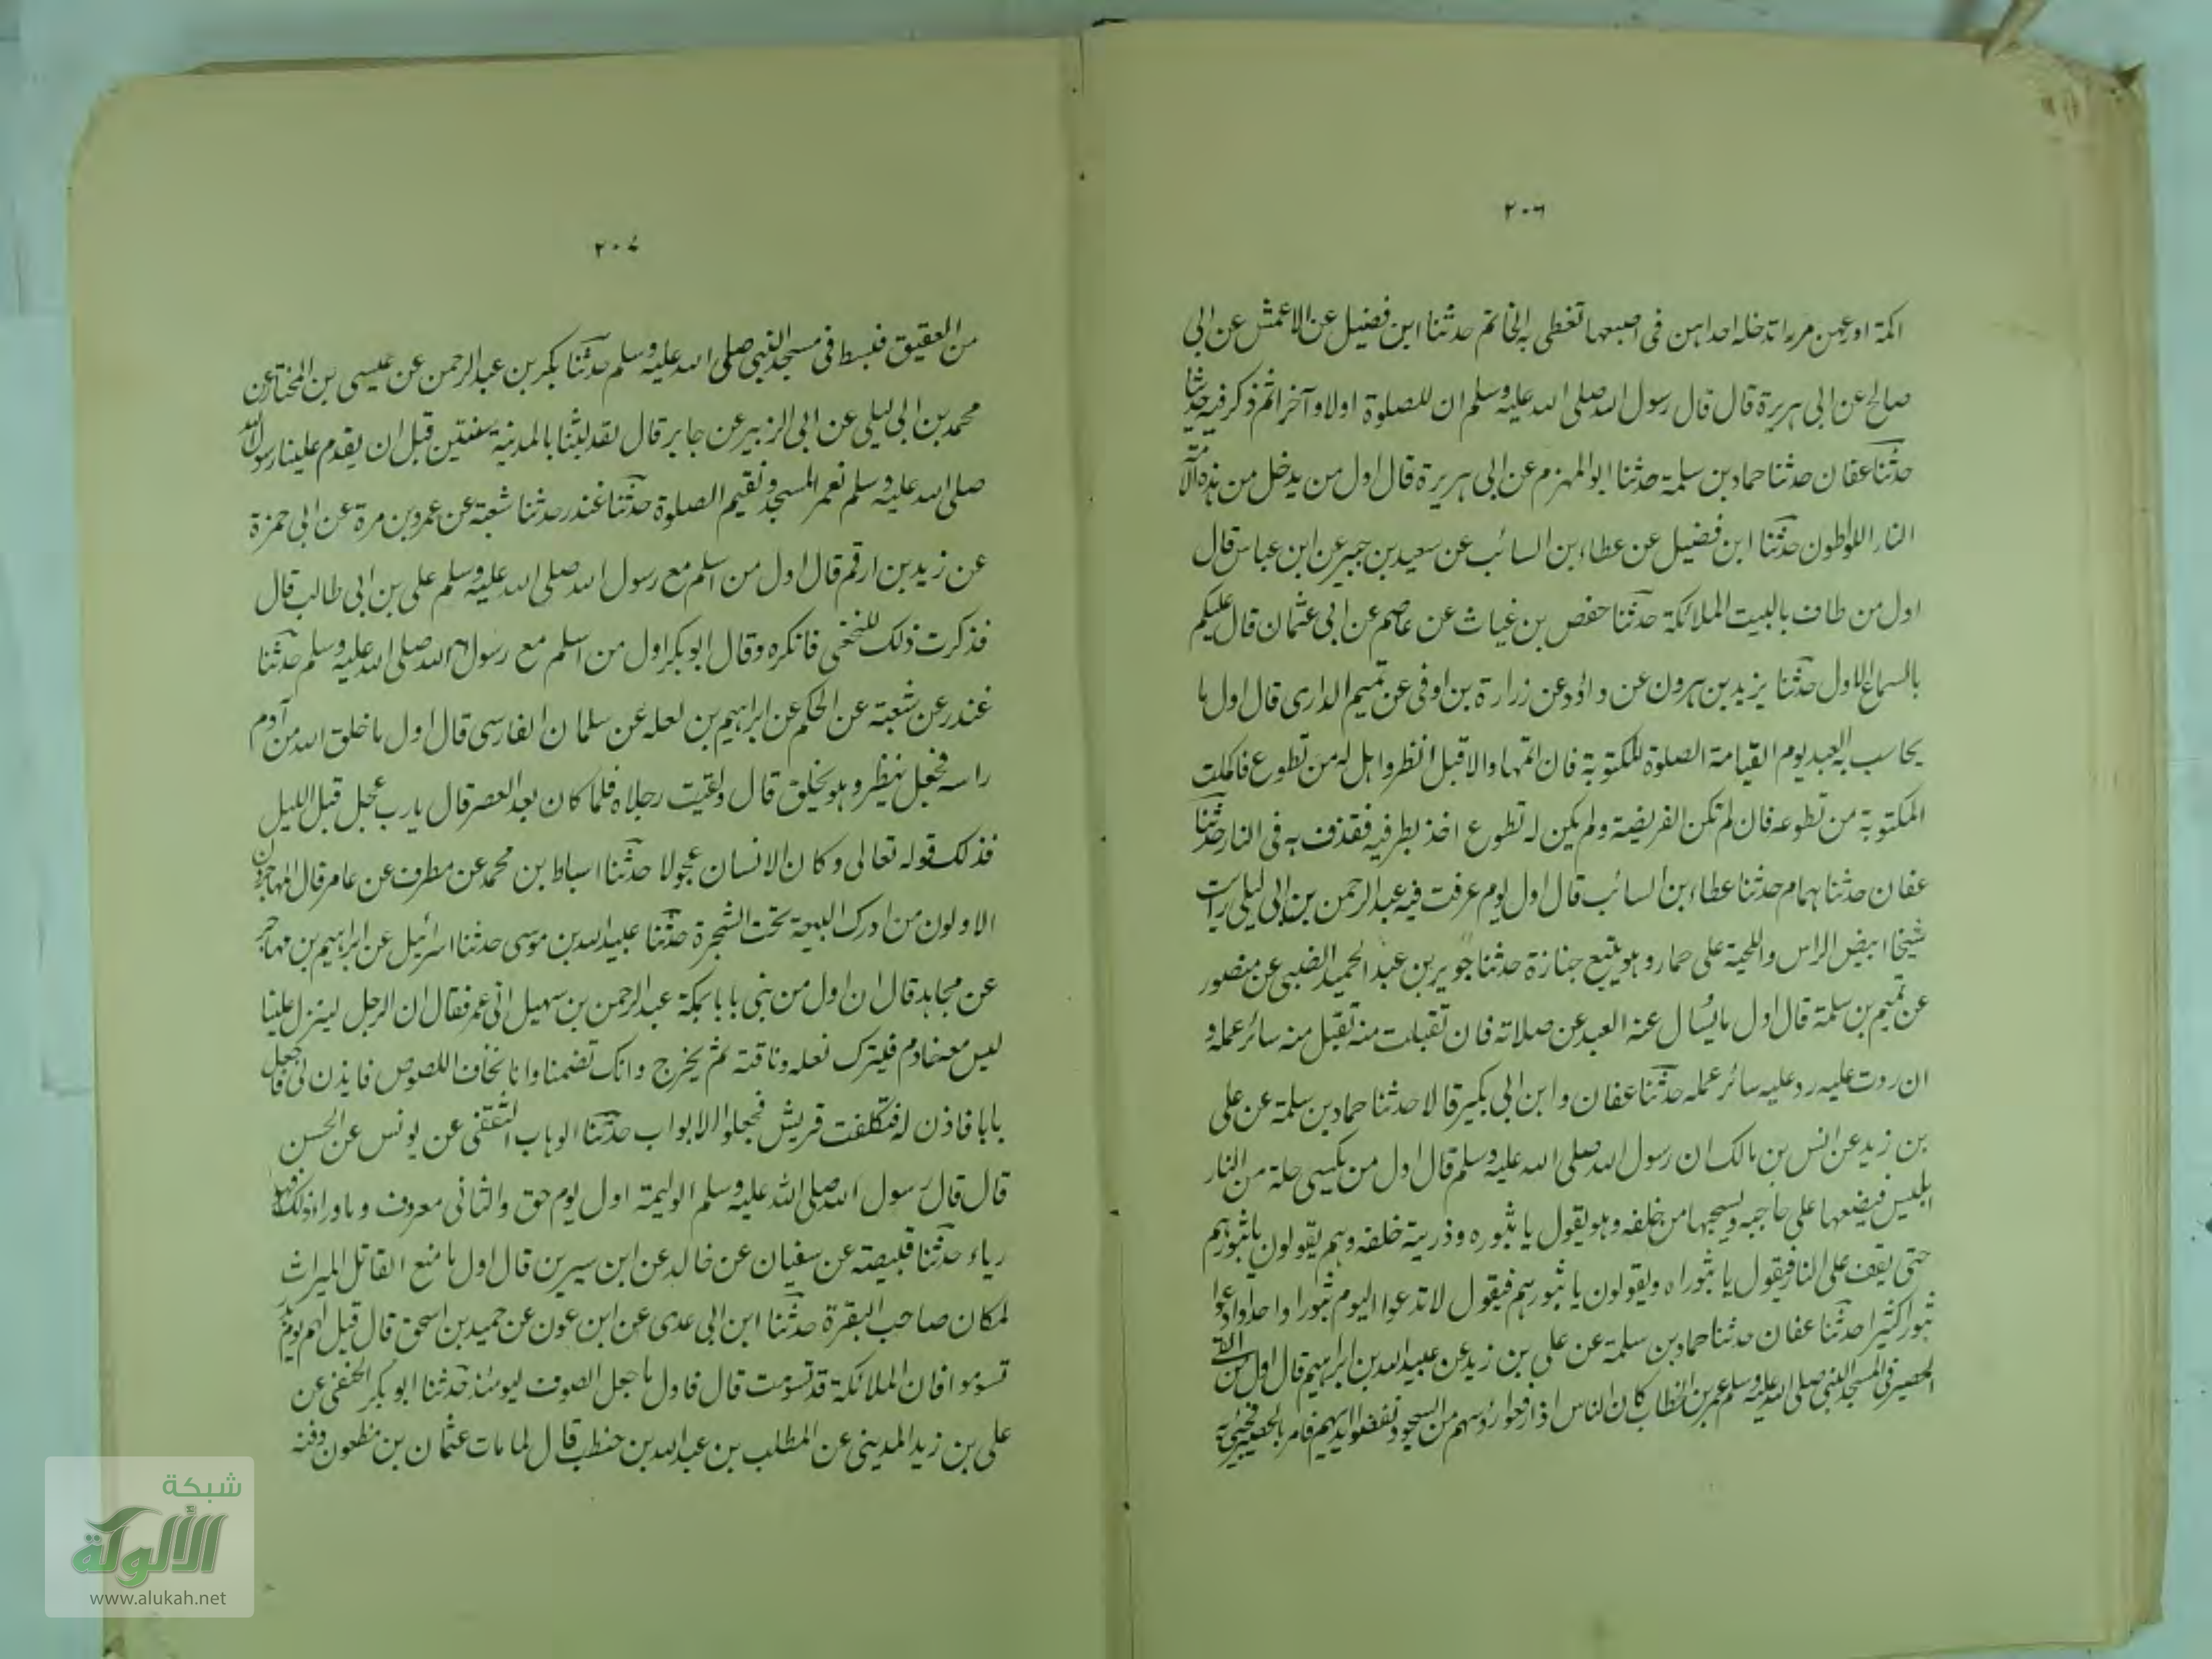 ٢٠٦
اكمة اوعهن مرءاتدخله احداهن فى اصبعها تغطى به الخاتم حدثنا ابن فضيل عن الاعمش عن ابى
صالح عن ابى هريرة قال قال رسول الله صلى الله عليه وسلم ان للصلوة اولا وآخرا ثم ذكر فيه حديثا
حدثنا عفان حدثنا حماد بن سلمة حدثنا ابو المهزم عن ابى هريرة قال اول من يدخل من هذه الامة
النار اللواطون حدثنا ابن فضيل عن عطاء بن السائب عن سعيد بن جبير عن ابن عباس قال
اول من طاف بالبيت الملائكة حدثنا حفص بن غياث عن عاصم عن ابى عثمان قال عليكم
بالسماع الاول حدثنا يزيد بن هرون عن داؤد عن زرارة بن اوفى عن تميم الدارى قال اول ما
يحاسب به العبد يوم القيامة الصلوة المكتوبة فان اتمها والا قيل انظروا هل له من تطوع فاكملت
المكتوبة من تطوعه فان لم تكن الفريضة ولم يكن له تطوع اخذ بطرفيه فقذف به فى النار حدثنا
عفان حدثنا همام حدثنا عطاء بن السائب قال اول يوم عرفت فيه عبد الرحمن بن ابى ليلى رايت
شيخا ابيض الراس واللحية على حمار وهو يتبع جنازة حدثنا جرير بن عبد الحميد الضبى عن منصور
عن تميم بن سلمة قال اول ما يسال عنه العبد عن صلاته فان تقبلت منه تقبل منه سائر عمله و
ان ردت عليه رد عليه سائر عمله حدثنا عفان وابن ابى بكير قالا حدثنا حماد بن سلمة عن على
بن زيد عن انس بن مالك ان رسول الله صلى الله عليه وسلم قال اول من يكسى حلة من النار
ابليس فيضعها على حاجبه ويسحبها من خلفه وهو يقول يا ثبوره وذريته خلفه وهم يقولون يا ثبورهم
حتى يقف على النار فيقول يا ثبوراه ويقولون يا ثبورهم فيقول لا تدعوا اليوم ثبورا واحدا وادعوا
ثبورا كثيرا حدثنا عفان حدثنا حماد بن سلمة عن على بن زيد عن عبيد الله بن ابراهيم قال اول من القى
الحصير فى المسجد النبى صلى الله عليه وسلم عمر بن الخطاب كان الناس اذا رفعوا رؤسهم من السجود نفضوا ايديهم فامر بالحصير فجيئ به
٢٠٧
من العقيق فبسط فى مسجد النبى صلى الله عليه وسلم حدثنا بكر بن عبد الرحمن عن عيسى بن المختار عن
محمد بن ابى ليلى عن ابى الزبير عن جابر قال لقد لبثنا بالمدينة سنتين قبل ان يقدم علينا رسول الله
صلى الله عليه وسلم نعمر المسجد ونقيم الصلوة حدثنا غندر حدثنا شعبة عن عمرو بن مرة عن ابى حمزة
عن زيد بن ارقم قال اول من اسلم مع رسول الله صلى الله عليه وسلم على بن ابى طالب قال
فذكرت ذلك للنخعى فانكره وقال ابو بكر اول من اسلم مع رسول الله صلى الله عليه وسلم حدثنا
غندر عن شعبة عن الحكم عن ابراهيم بن لعله عن سلمان الفارسى قال اول ما خلق الله من آدم
راسه فجعل ينظر وهو يخلق قال ولقيت رجلاه فلما كان بعد العصر قال يارب عجل قبل الليل
فذلك قوله تعالى وكان الانسان عجولا حدثنا اسباط بن محمد عن مطرف عن عامر قال المهاجرون
الاولون من ادرك البيعة تحت الشجرة حدثنا عبيد الله بن موسى حدثنا اسرائيل عن ابراهيم بن مهاجر
عن مجاهد قال ان اول من بنى بابا بمكة عبد الرحمن بن سهيل اتى عمر فقال ان الرجل لينزل علينا
ليس معه خادم فيترك نعله وناقته ثم يخرج وانك تضمنا وانا نخاف اللصوص فايذن لى فاجعل
بابا فاذن له فتكلفت قريش فجعلوا الابواب حدثنا الوهاب الثقفى عن يونس عن الحسن
قال قال رسول الله صلى الله عليه وسلم الوليمة اول يوم حق والثانى معروف وما وراء ذلك فهو
رياء حدثنا قبيصة عن سفيان عن خالد عن ابن سيرين قال اول ما منع القاتل الميراث
لمكان صاحب البقرة حدثنا ابن ابى عدى عن ابن عون عن حميد بن اسحق قال قيل لهم يوم بدر
تسوموا فان الملائكة قد تسومت قال فاول ما جعل الصوف ليومئذ حدثنا ابو بكر الحنفى عن
على بن زيد المدينى عن المطلب بن عبد الله بن حنطب قال لما مات عثمان بن مظعون دفنه
شبكة
الألوكة
www.alukah.net